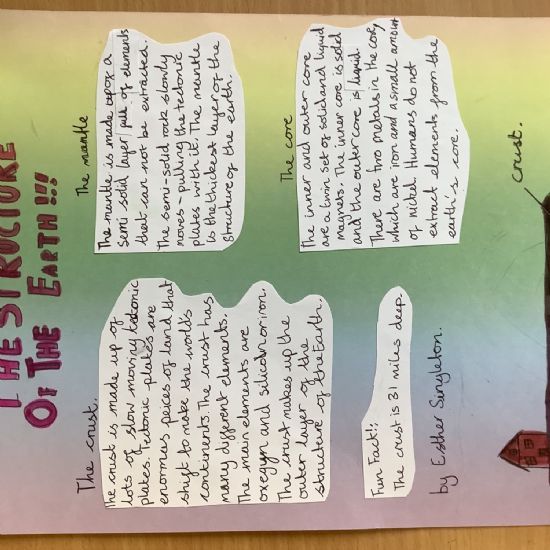 THE STRUCTURE
OF THE EARTH!!!
The crust.
The crust is made up of
lots of slow moving tectonic
plates. Tectonic plates are
enormous peices of land that
shift to make the world's
continents. The crust has
many different elements.
The main elements are
oxegyn and silicon or iron.
The crust makes up the
outer layer of the
structure of the Earth.
Fun Fact!:
The crust is 31 miles deep.
by Esther Singleton.
The mantle
The mantle is made up of a
semi solid layer full of elements
that can not be extracted.
The semi-solid rock slowly
moves-pulling the tectonic
plates with it. The mantle
is the thickest layer of the
structure of the earth.
The core
The inner and outer core
are a twin set of solid and liquid
magnets. The inner core is solid
and the outer core is liquid.
There are two metals in the core,
which are iron and a small amount
of nickel. Humans do not
extract elements from the
earth's core.
crust.